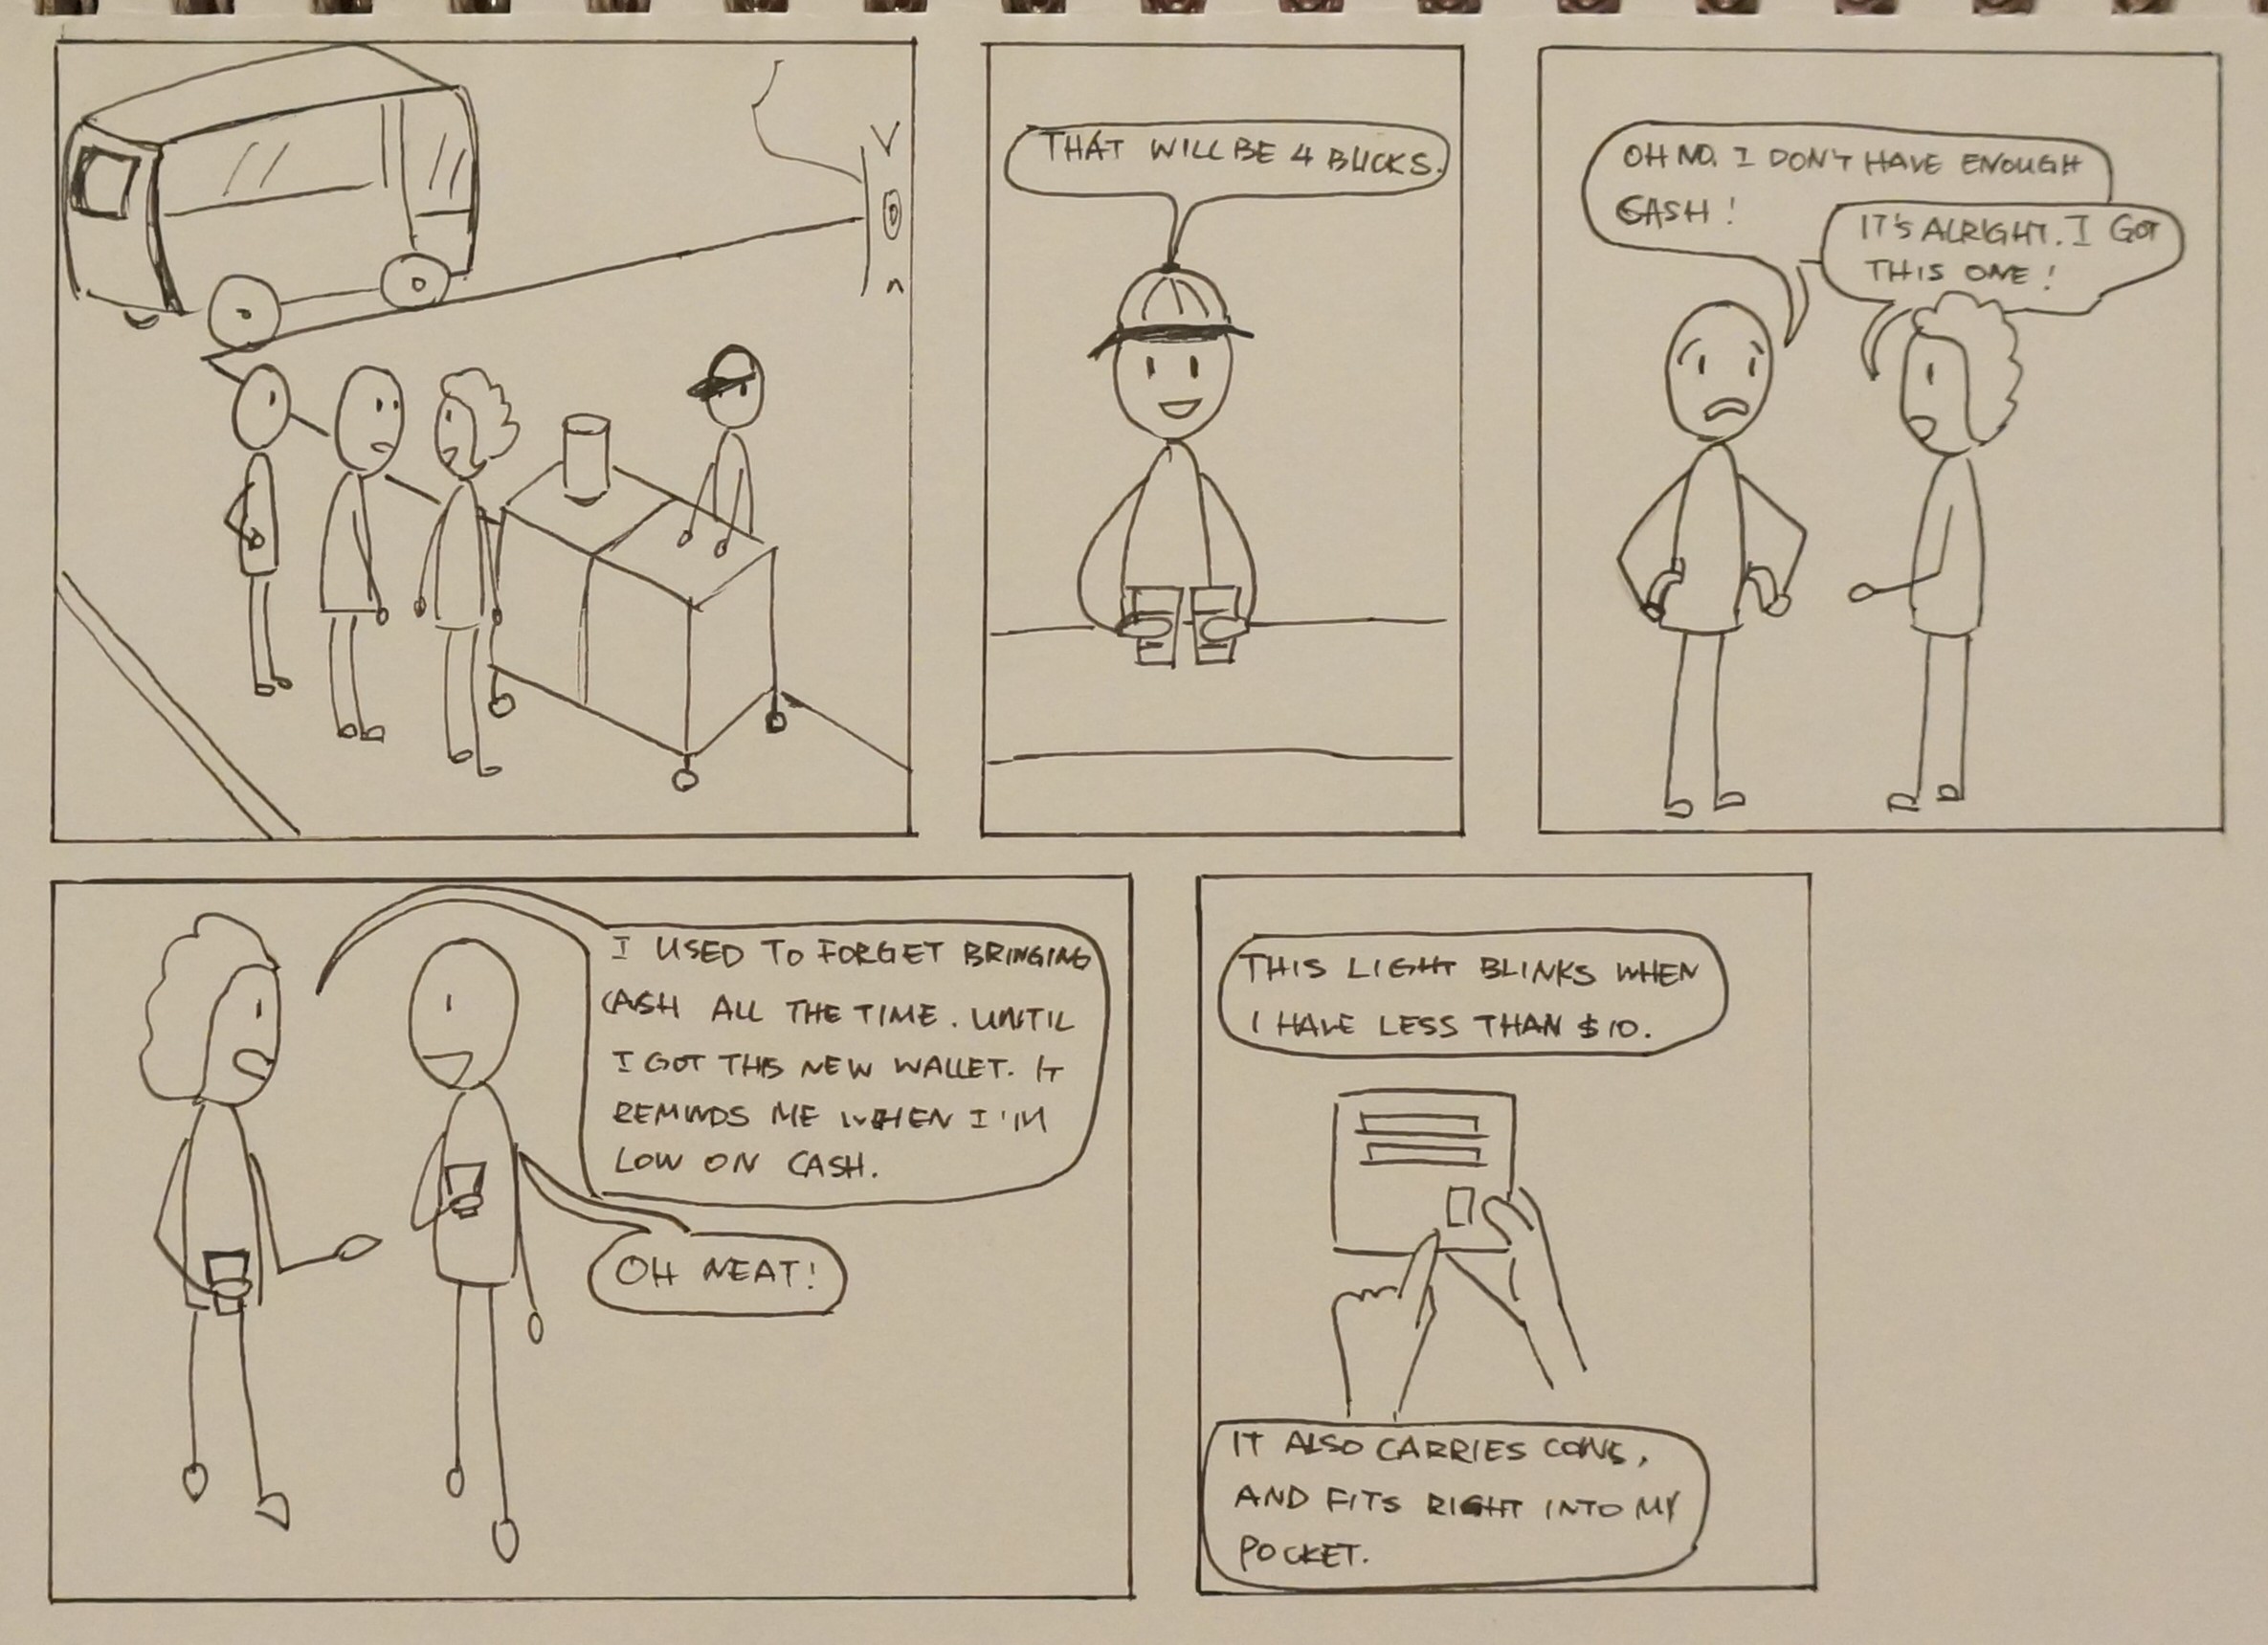 THAT WILL BE 4 BUCKS.
OH NO. I DON'T HAVE ENOUGH
CASH!
IT'S ALRIGHT. I GOT
THIS ONE!
I USED TO FORGET BRINGING
CASH ALL THE TIME. UNTIL
I GOT THIS NEW WALLET. IT
REMINDS ME WHEN I'M
LOW ON CASH.
OH NEAT!
THIS LIGHT BLINKS WHEN
I HAVE LESS THAN $10.
IT ALSO CARRIES COINS,
AND FITS RIGHT INTO MY
POCKET.